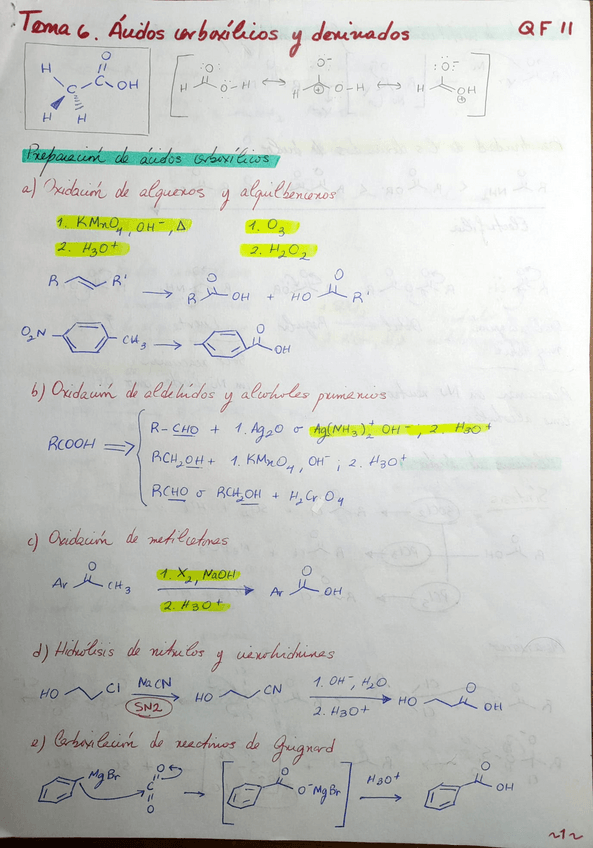 Tema 6. Ácidos carboxílicos y derivados QF II
H H H C C O OH
H O O - H ↔ H O⁻ ⊕ O - H ↔ H O⁻ OH ⊕
Preparación de ácidos carboxílicos
a) Oxidación de alquenos y alquilbencenos
1. KMnO4, OH⁻, Δ 1. O3
2. H3O+ 2. H2O2
R R' → R O OH + HO O R'
O2N CH3 → O OH
b) Oxidación de aldehídos y alcoholes primarios
R-CHO + 1. Ag2O o Ag(NH3)2+ OH⁻; 2. H3O+
RCOOH ⇒ RCH2OH + 1. KMnO4, OH⁻; 2. H3O+
RCHO o RCH2OH + H2CrO4
c) Oxidación de metilcetonas
Ar O CH3 1. X2, NaOH 2. H3O+ Ar O OH
d) Hidrólisis de nitrilos y cianohidrinas
HO Cl NaCN SN2 HO CN 1. OH⁻, H2O 2. H3O+ HO O OH
e) Carboxilación de reactivos de Grignard
MgBr O C O → O O⁻MgBr H3O+ → O OH
~1~